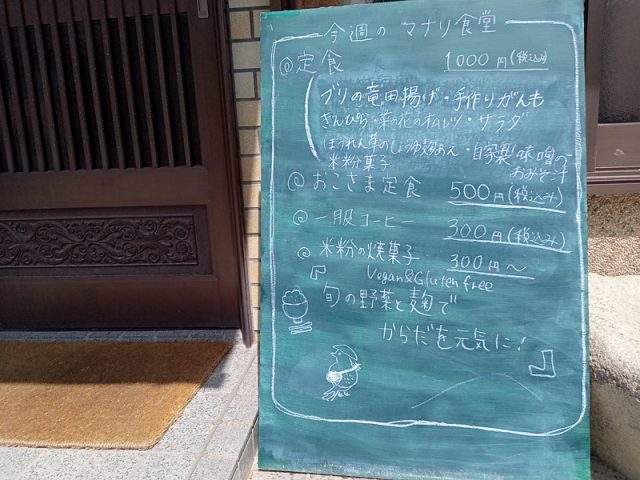 今週のマナリ食堂
◎定食 1000円(税込み)
ブリの竜田揚げ・手作りがんも
きんぴら・菜の花のオムレツ・サラダ
ほうれん草のしょうゆ麹あえ・自家製味噌の
おみそ汁
米粉菓子
◎おこさま定食 500円(税込み)
◎一服コーヒー 300円(税込み)
◎米粉の焼菓子 300円～
Vegan&Gluten free
旬の野菜と麹で
からだを元気に!